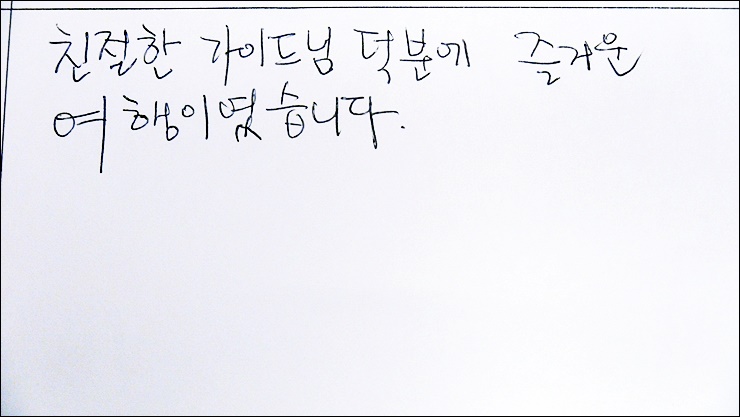 친절한 가이드님 덕분에 즐거운
여행이였습니다.